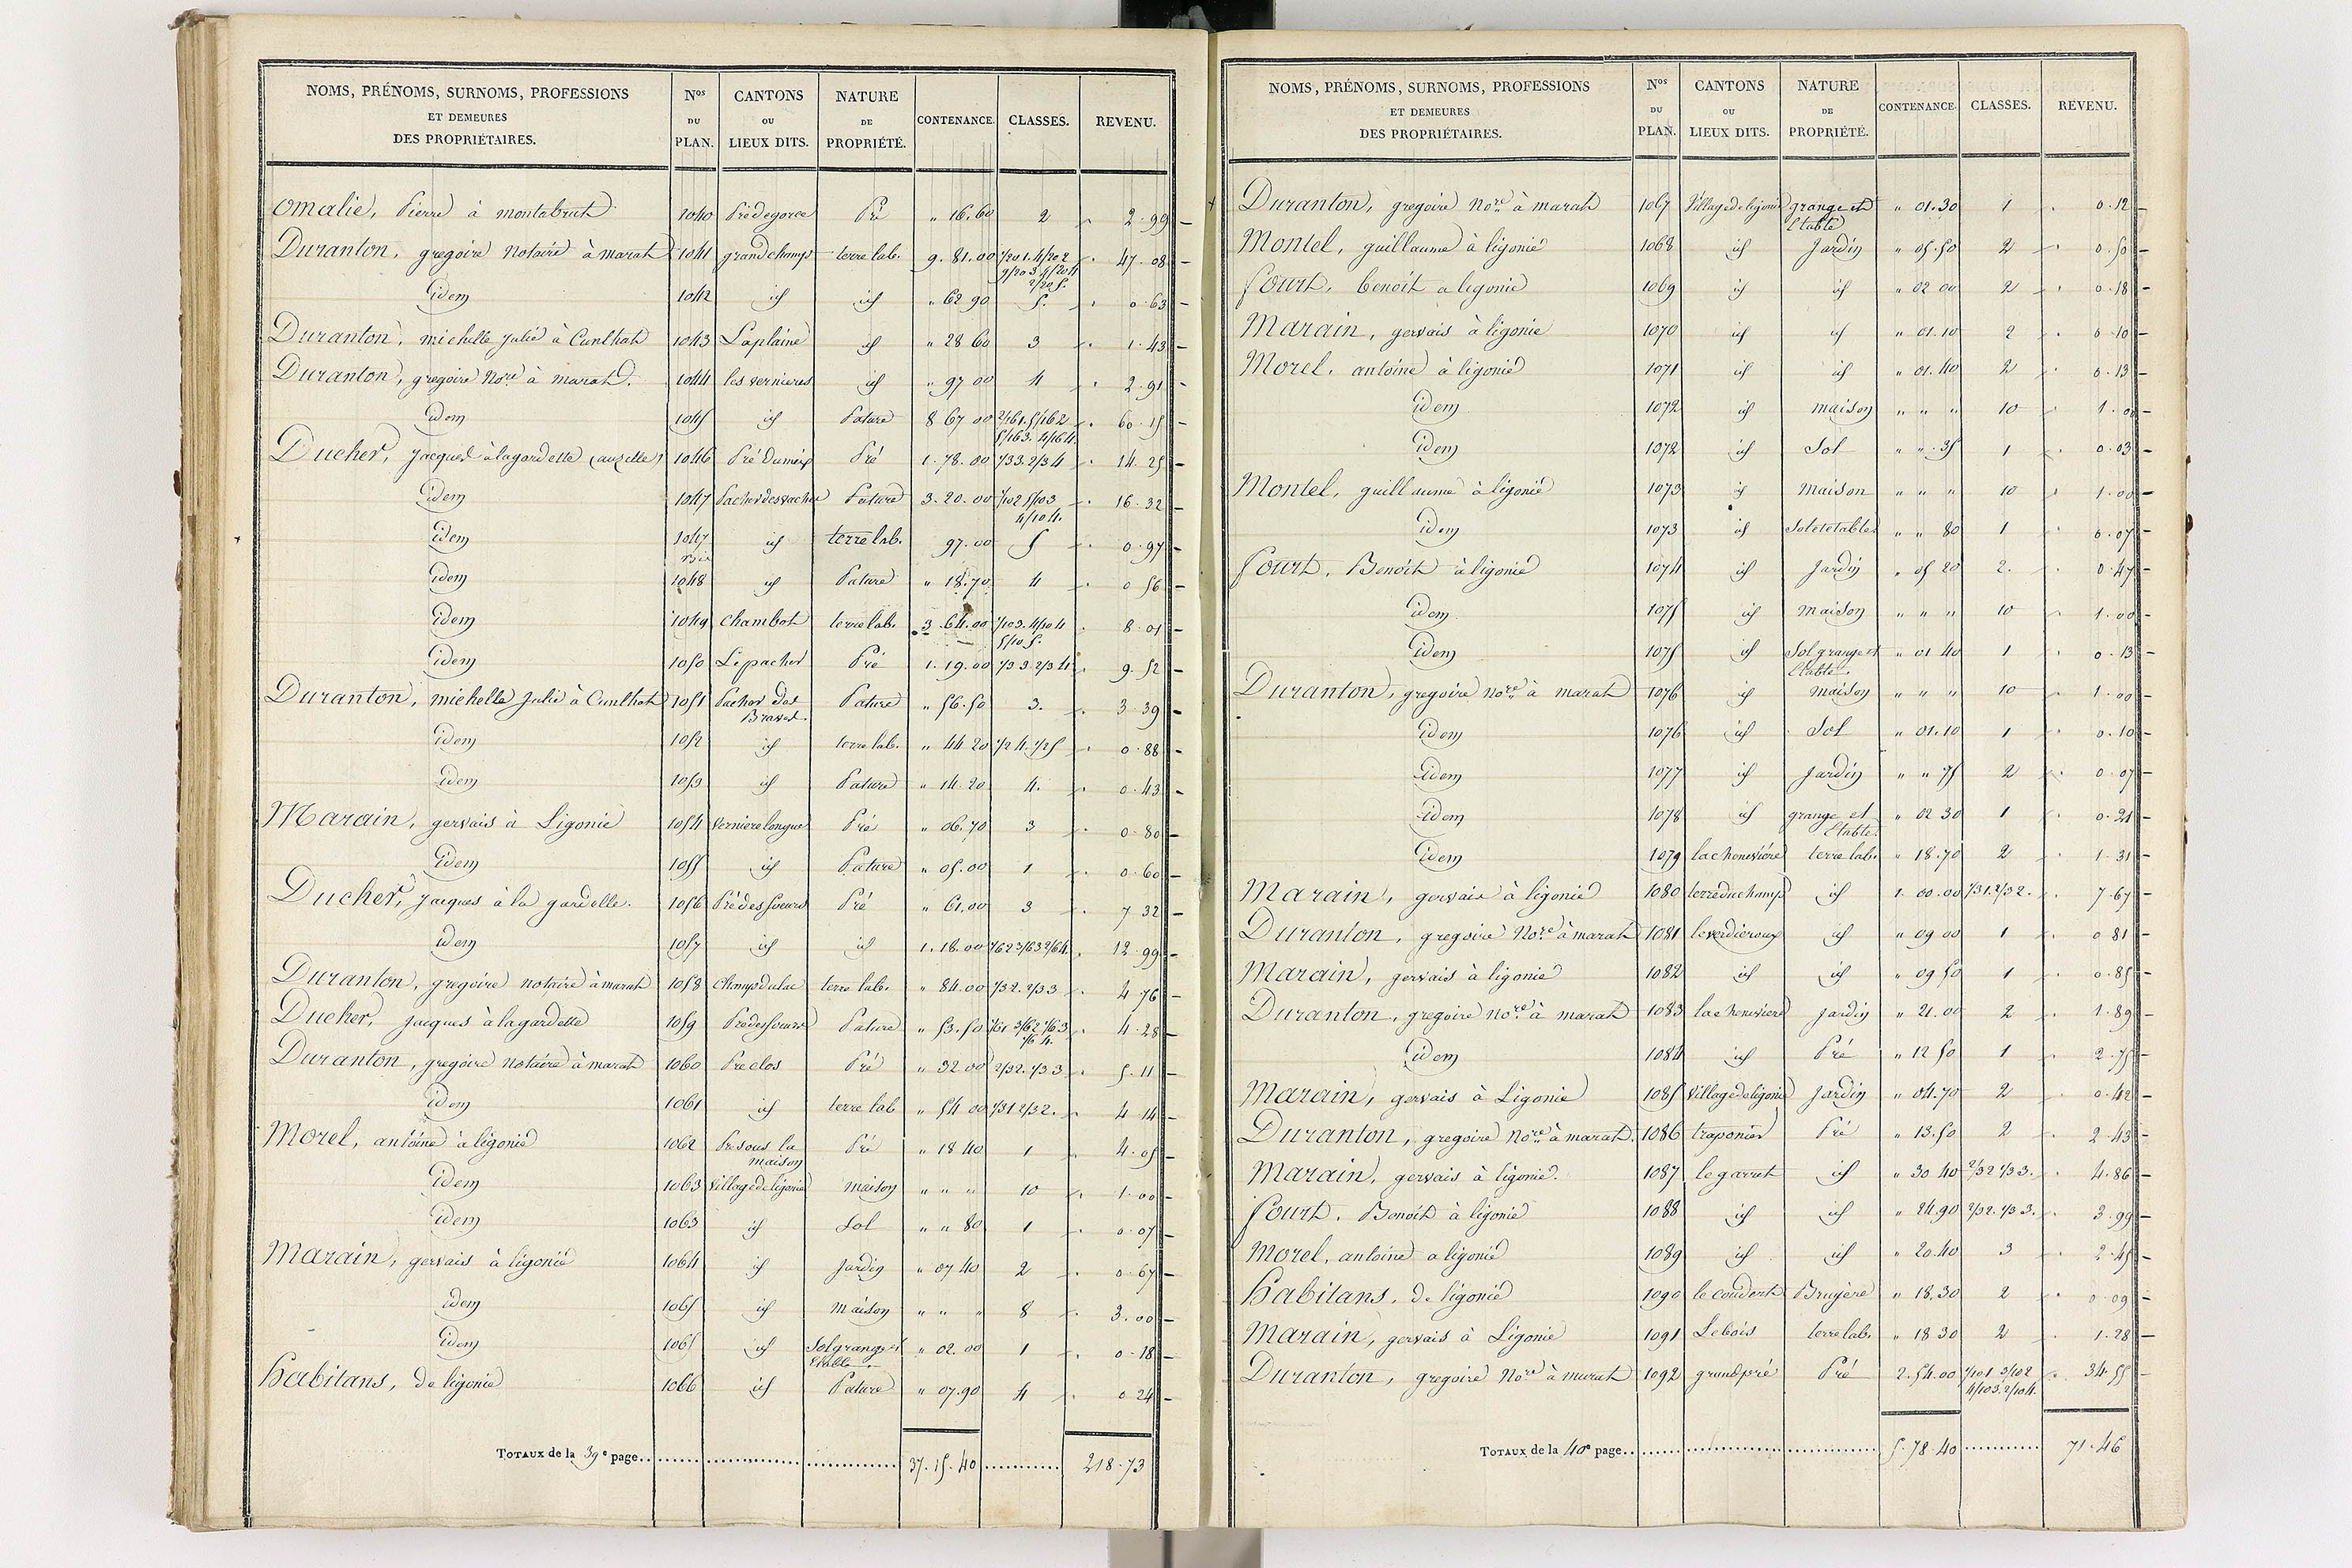 NOMS, PRÉNOMS, SURNOMS, PROFESSIONS ET DEMEURES DES PROPRIÉTAIRES. Nos DU PLAN. CANTONS OU LIEUX DITS. NATURE DE PROPRIÉTÉ. CONTENANCE. CLASSES. REVENU.
omalie, Pierre à montabrut 1040 Prédegorce Pré " 16.60 2 2.99
Duranton, gregoire Notaire à marat 1041 grandchamp terre lab. 9.81.00 1/20 1. 4/20 2 9/20 3 4/20 4 2/20 5. 47.08
idem 1042 id id " 62 90 5. 0.63
Duranton, michelle Julie à Cunlhat 1043 Laplaine id " 28 60 3 1.43
Duranton, gregoire Nore à marat. 1044 les vernieres id " 97 00 4 2.91
idem 1045 id Pature 8 67 00 2/16 1. 5/16 2 5/16 3. 4/16 4. 60.15
Ducher, Jacques à lagardette (auzelle) 1046 Pré Dumeix Pré 1.78.00 1/3 3. 2/3 4 14.25
idem 1047 Pacherdesvaches Pature 3.20.00 1/10 2 5/10 3 4/10 4. 16.32
idem 1047 bis id terre lab. 97.00 5 0.97
idem 1048 id Pature " 18.70 4 0 56
idem 1049 chambot terre lab. 3.64.00 1/10 3. 4/10 4 5/10 5. 8.01
idem 1050 Lepacher Pré 1.19.00 1/3 3. 2/3 4. 9.52
Duranton, michelle Julie à Cunlhat 1051 Pacher des Pature " 56.50 3. 3 39
idem 1052 id terre lab. " 44 20 1/2 4. 1/2 5 0.88
idem 1053 id Pature " 14.20 4. 0.43
Marain, gervais à Ligonie 1054 vernierelongue Pré " 06.70 3 0.80
idem 1055 id Pature " 05.00 1 0.60
Ducher, Jacques à la gardelle. 1056 Prédessoeurs Pré " 61.00 3 7 32
idem 1057 id id 1.18.00 1/6 2 3/6 3 2/6 4. 12.99
Duranton, gregoire notaire à marat 1058 Champdulac terre lab. " 84.00 1/3 2. 2/3 3 4 76
Ducher, Jacques à lagardette 1059 Prédessoeurs Pature " 53.50 1/6 1 3/6 2 1/6 3 1/6 4. 4.28
Duranton, gregoire Notaire à marat 1060 Preclos Pré " 32 00 2/3 2. 1/3 3 5.11
idem 1061 id terre lab " 54 00 1/3 1 2/3 2. 4 14
Morel, antoine à ligonie 1062 Pre sous la maison Pré " 18 40 1 4.05
idem 1063 Villagedeligonie maison " " " 10 1.00
idem 1063 id Sol " " 80 1 0.07
Marain, gervais à ligonie 1064 id Jardin " 07 40 2 0.67
idem 1065 id maison " " " 8 3.00
idem 1065 id Sol grange et Etable " 02.00 1 0.18
habitans, de ligonie 1066 id Pature " 07.90 4 0 24
TOTAUX de la 39e page 37.15.40 218.73
NOMS, PRÉNOMS, SURNOMS, PROFESSIONS ET DEMEURES DES PROPRIÉTAIRES. Nos DU PLAN. CANTONS OU LIEUX DITS. NATURE DE PROPRIÉTÉ. CONTENANCE. CLASSES. REVENU.
Duranton, gregoire Nore à marat 1067 Villagedeligonie grange et Etable " 01.30 1 0.12
Montel, guillaume à ligonie 1068 id Jardin " 05.50 2 0.50
Court, benoit a ligonie 1069 id id " 02 00 2 0.18
Marain, gervais à ligonie 1070 id id " 01.10 2 0 10
Morel, antoine à ligonie 1071 id id " 01.40 2 0.13
idem 1072 id maison " " " 10 1.00
idem 1072 id Sol " " 35 1 0.03
Montel, guillaume à ligonie 1073 id maison " " " 10 1.00
idem 1073 id Sol et étables " " 80 1 0.07
Court, Benoit à ligonie 1074 id Jardin " 05 20 2. 0.47
idem 1075 id maison " " " 10 1.00
idem 1075 id Sol grange et Etable. " 01 40 1 0.13
Duranton, gregoire nore à marat 1076 id maison " " " 10 1.00
idem 1076 id Sol " 01.10 1 0.10
idem 1077 id Jardin " " 75 2 0.07
idem 1078 id grange et Etable. " 02 30 1 0.21
idem 1079 lachenevière terre lab. " 18.70 2 1.31
Marain, gervais à ligonie 1080 terreduchamp id 1.00.00 1/3 1. 2/3 2. 7.67
Duranton, gregoire Nore à marat 1081 leverdieroux id " 09 00 1 0 81
Marain, gervais à ligonie 1082 id id " 09 50 1 0.85
Duranton, gregoire nore à marat 1083 lacheneviere Jardin " 21.00 2 1.89
idem 1084 id Pré " 12 50 1 2.75
Marain, gervais à Ligonie 1085 Villagedeligonie Jardin " 04.70 2 0.42
Duranton, gregoire Nore à marat. 1086 traponier Pré " 13.50 2 2.43
Marain, gervais à ligonie. 1087 legarret id " 30 40 2/3 2 1/3 3. 4.86
Court, Benoit à ligonie 1088 id id " 24.90 2/3 2. 1/3 3. 3.99
Morel, antoine a ligonie 1089 id id " 20.40 3 2.45
habitans, de ligonie 1090 le coudert Bruyère " 18.30 2 0 09
Marain, gervais à Ligonie 1091 Lebois terre lab. " 18 30 2 1.28
Duranton, gregoire Nore à marat 1092 grandpré Pré 2.54.00 1/10 1 3/10 2 4/10 3 2/10 4. 34.55
TOTAUX de la 40e page 5.78.40 71.46